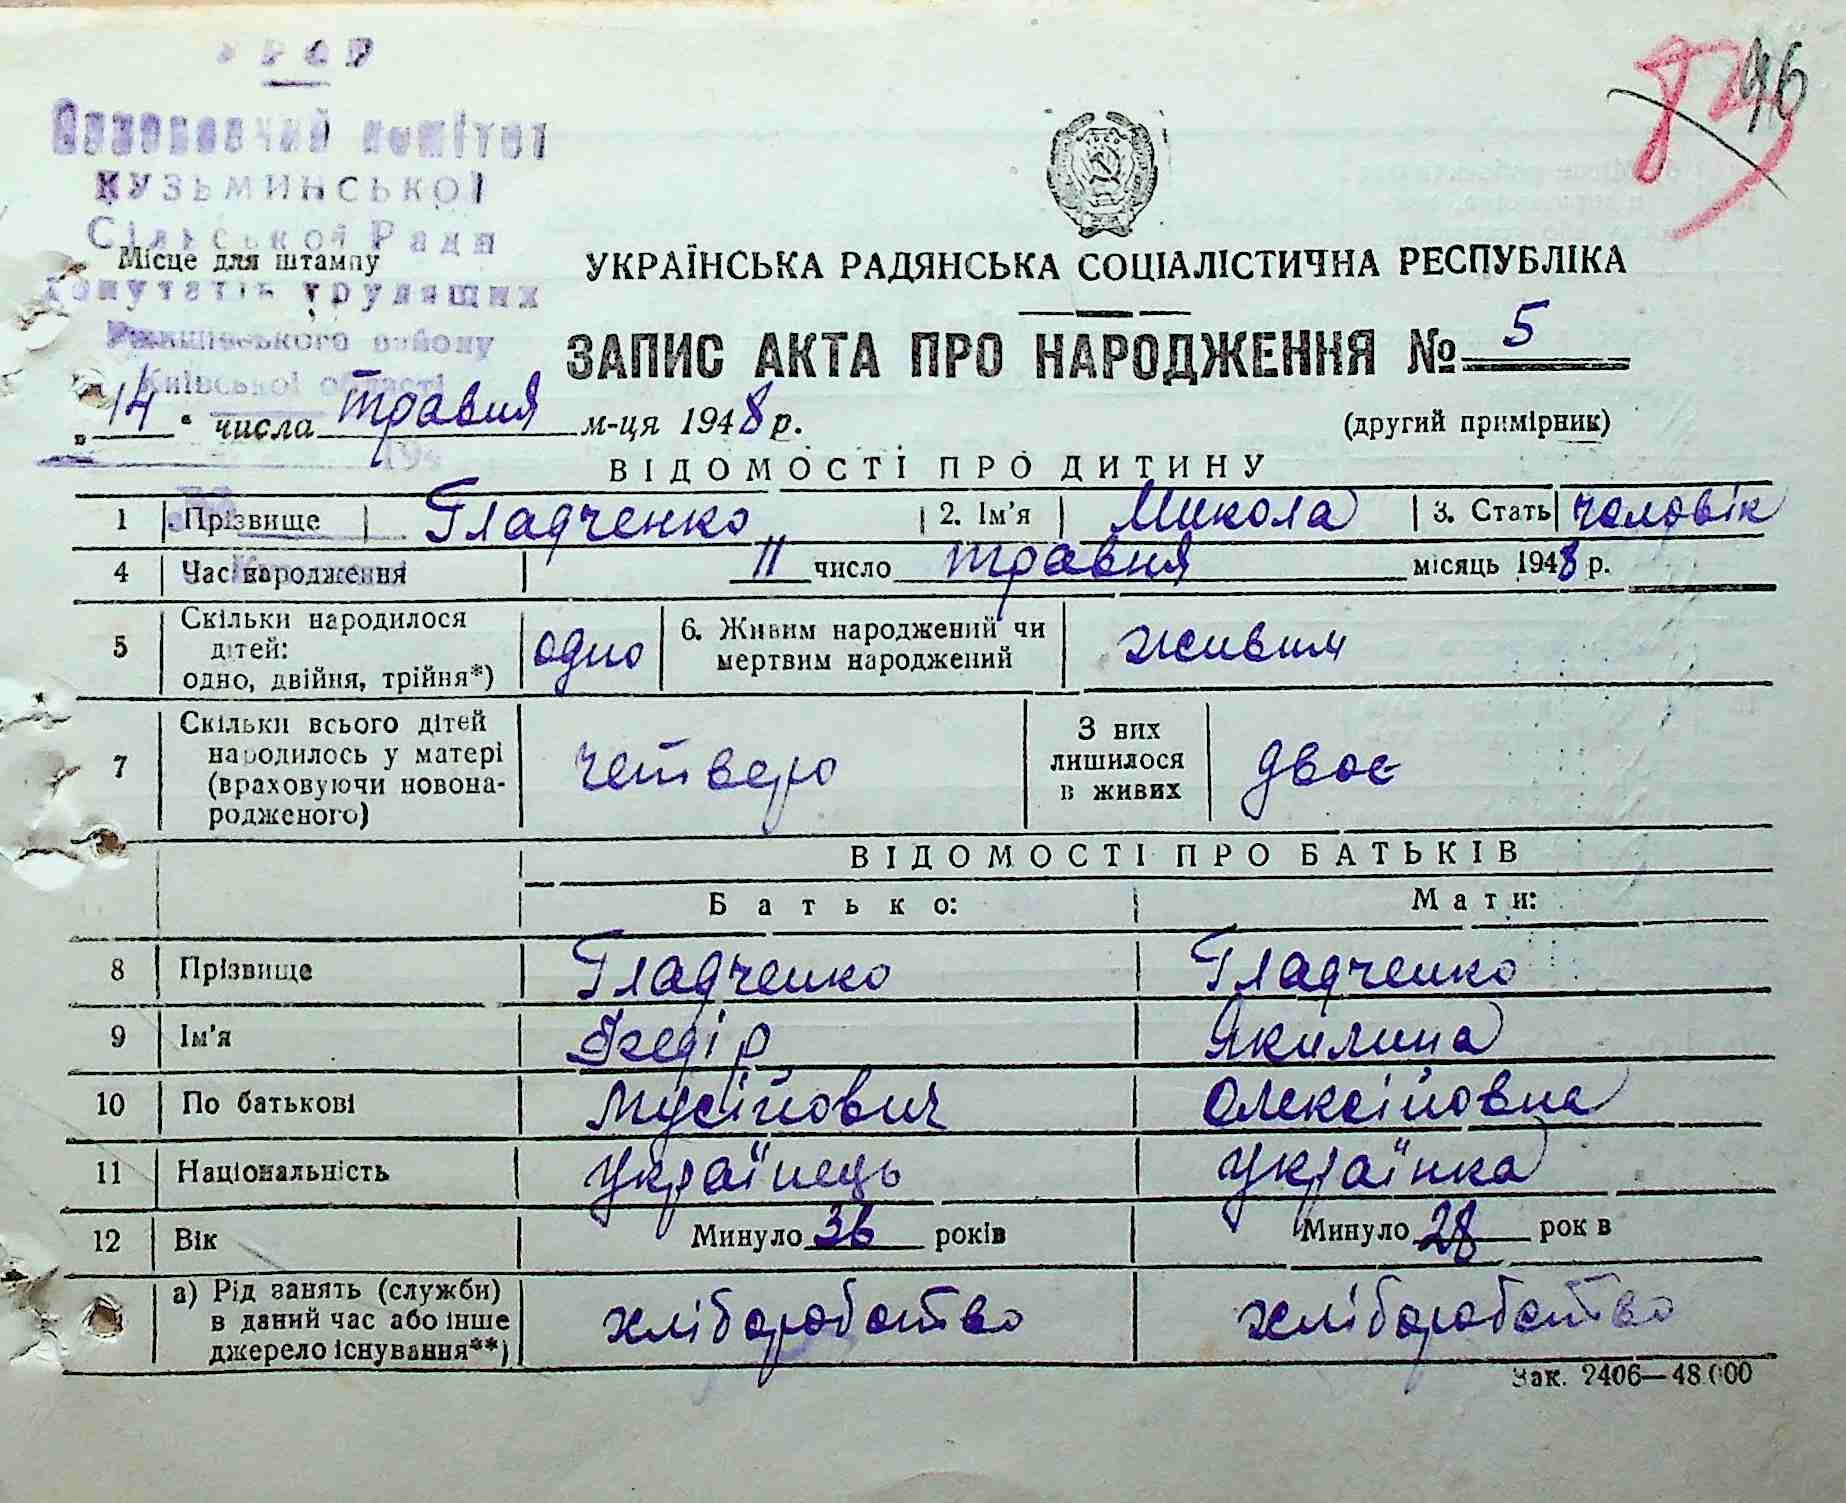 УРСР
Виконавчий комітет
КУЗЬМИНСЬКОЇ
Сільської Ради
Місце для штампу
депутатів трудящих
району
Київської області
194
УКРАЇНСЬКА РАДЯНСЬКА СОЦІАЛІСТИЧНА РЕСПУБЛІКА
ЗАПИС АКТА ПРО НАРОДЖЕННЯ № 5
„14“ числа травня м-ця 1948 р.
(другий примірник)
96
ВІДОМОСТІ ПРО ДИТИНУ
1 Прізвище Гладченко 2. Ім'я Микола 3. Стать чоловік
4 Час народження 11 число травня місяць 1948 р.
5 Скільки народилося дітей: одно, двійня, трійня*) одно 6. Живим народжений чи мертвим народжений живим
7 Скільки всього дітей народилось у матері (враховуючи новонародженого) четверо З них лишилося в живих двоє
ВІДОМОСТІ ПРО БАТЬКІВ
Батько: Мати:
8 Прізвище Гладченко Гладченко
9 Ім'я Федір Якилина
10 По батькові Мусійович Олексійовна
11 Національність Українець Українка
12 Вік Минуло 36 років Минуло 28 рок в
а) Рід занять (служби) в даний час або інше джерело існування**) хліборобство хліборобство
Зак. 2406—48.000